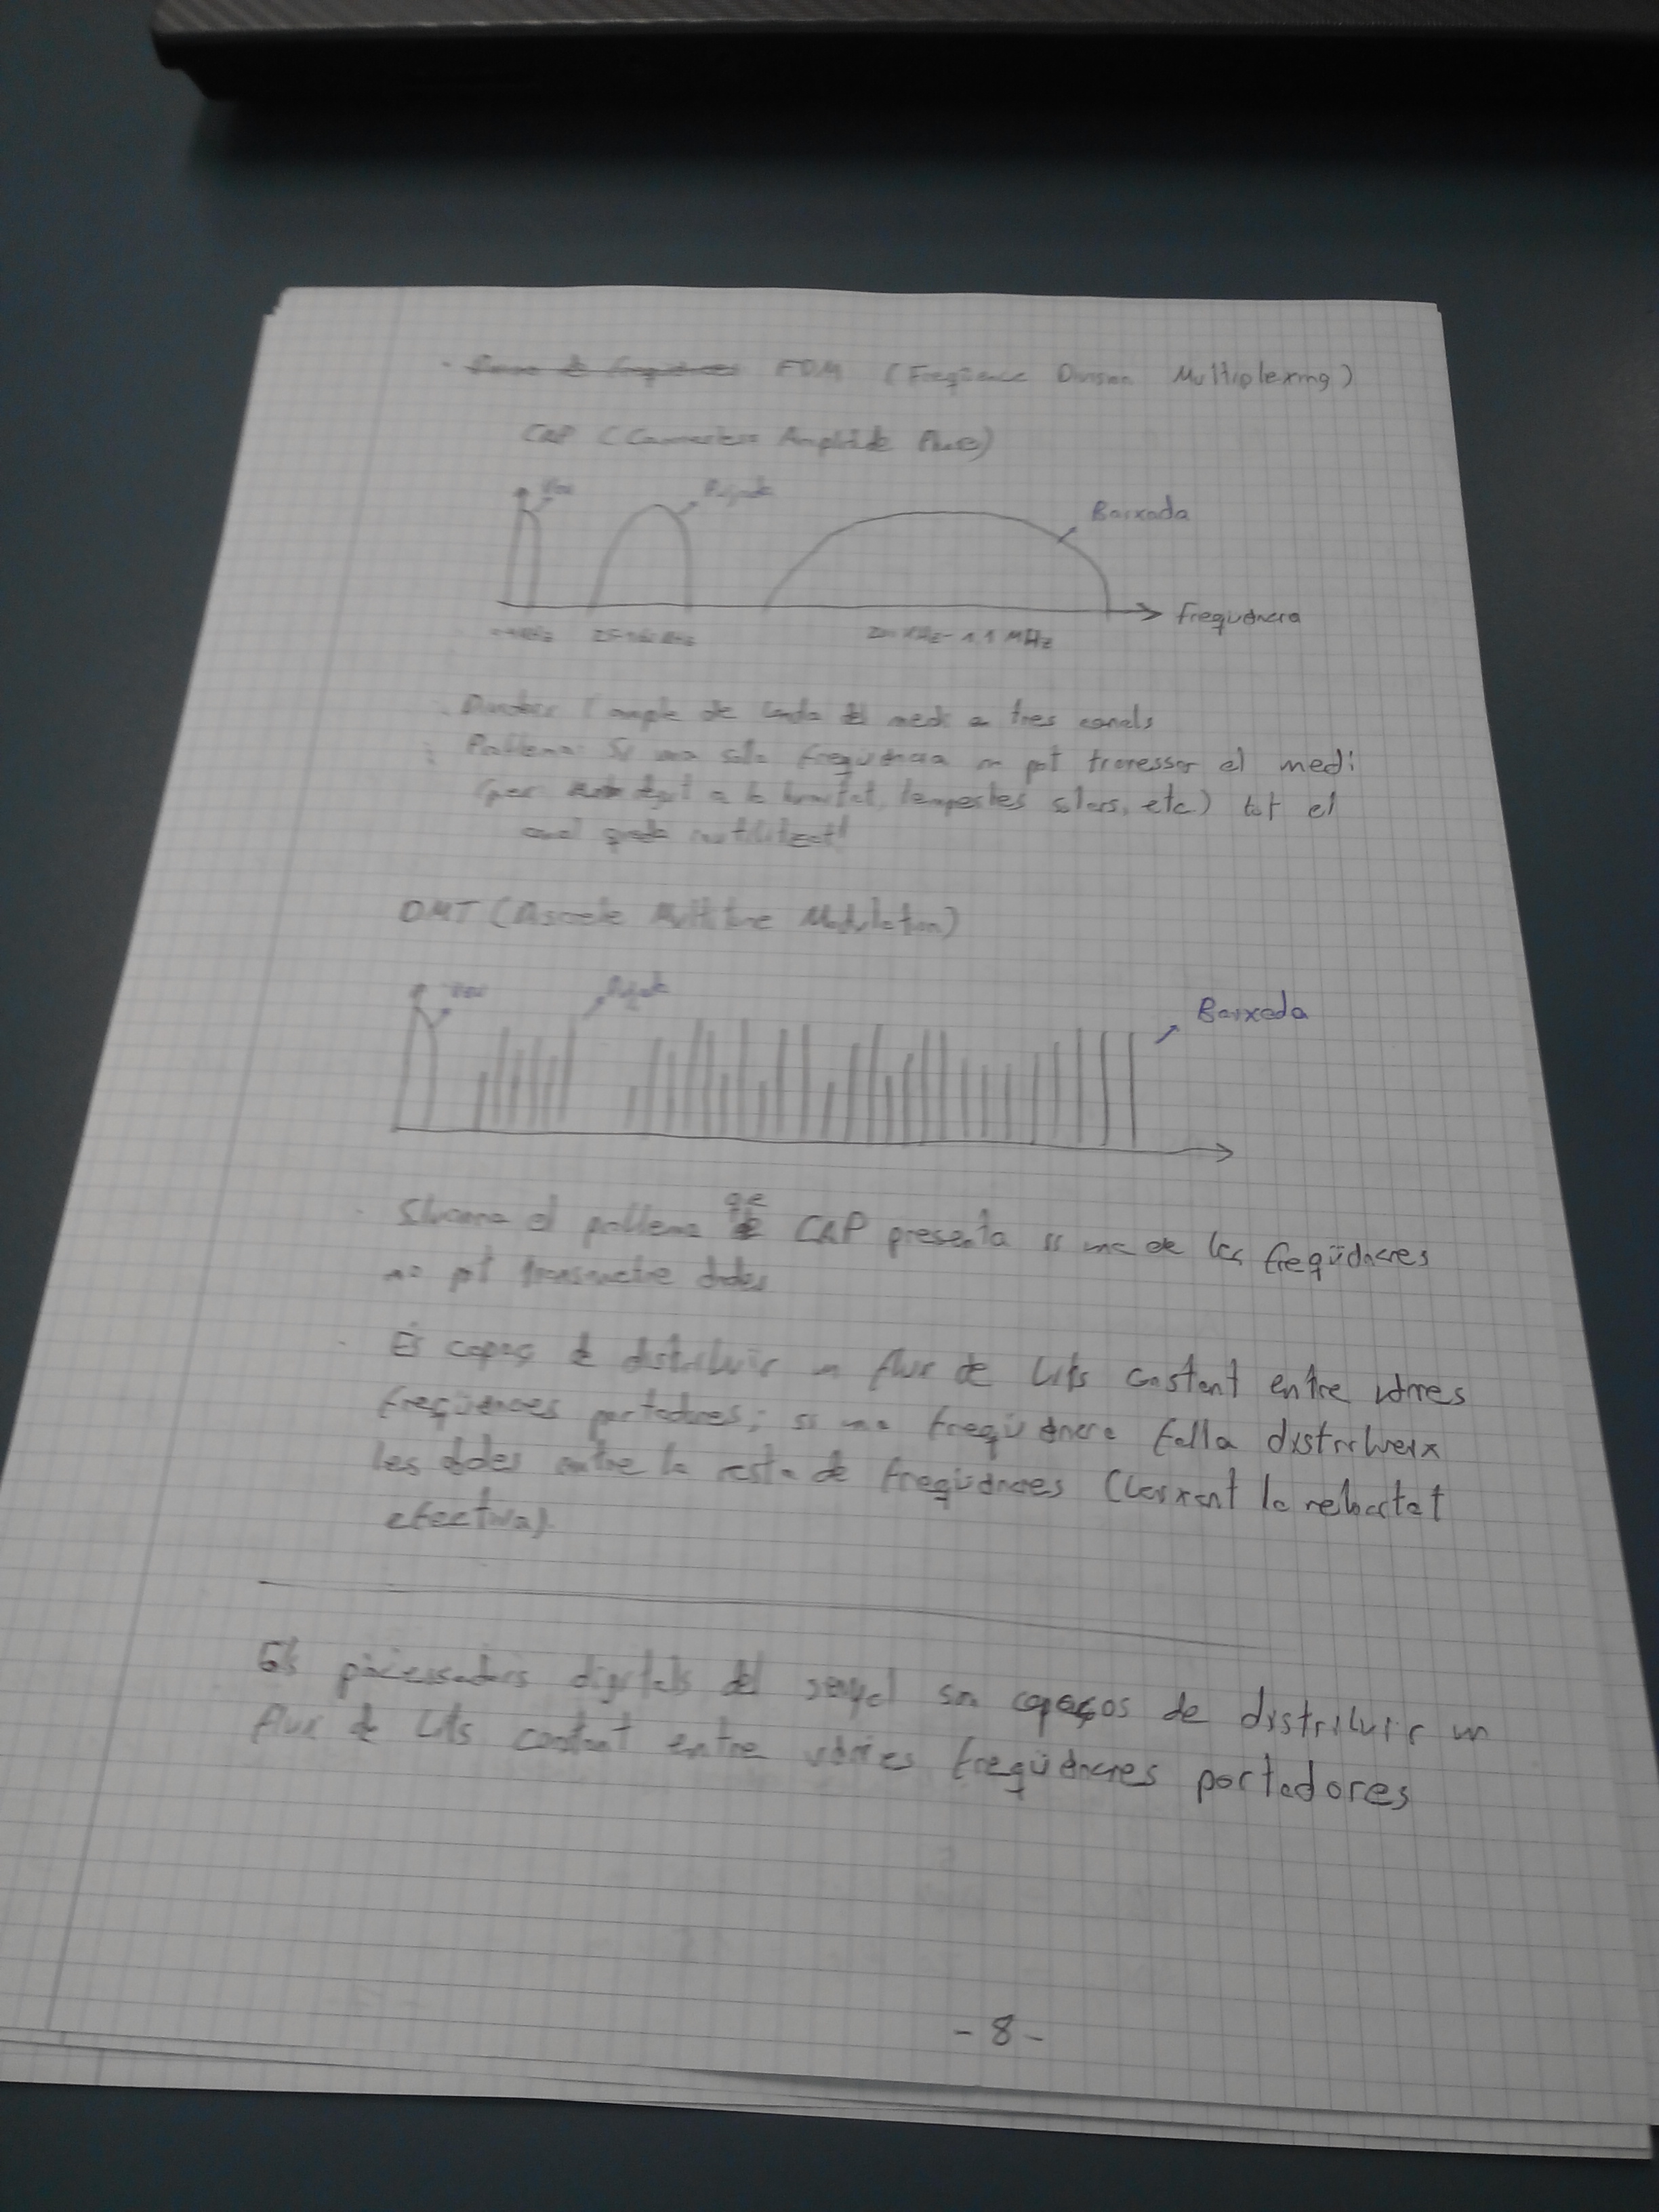 FDM (Freqüence Division Multiplexing)
CAP (Carrierless Amplitude Phase)
Veu
Pujada
Baixada
Freqüència
25-160 KHz
KHz - 1.1 MHz
l'ample de banda del medi en tres canals
Problema: Si una sola freqüència no pot travessar el medi
(per degut a la humitat, tempestes solars, etc) tot el
canal queda inutilitzat!
DMT (Discrete Multitone Modulation)
Veu
Pujada
Baixada
Soluciona el problema que CAP presenta si una de les freqüències
no pot transmetre dades
És capaç de distribuir un flux de bits constant entre vàries
freqüències portadores; si una freqüència falla distribueix
les dades entre la resta de freqüències (baixant la velocitat
efectiva).
Els processadors digitals del senyal són capaços de distribuir un
flux de bits constant entre vàries freqüències portadores
- 8 -